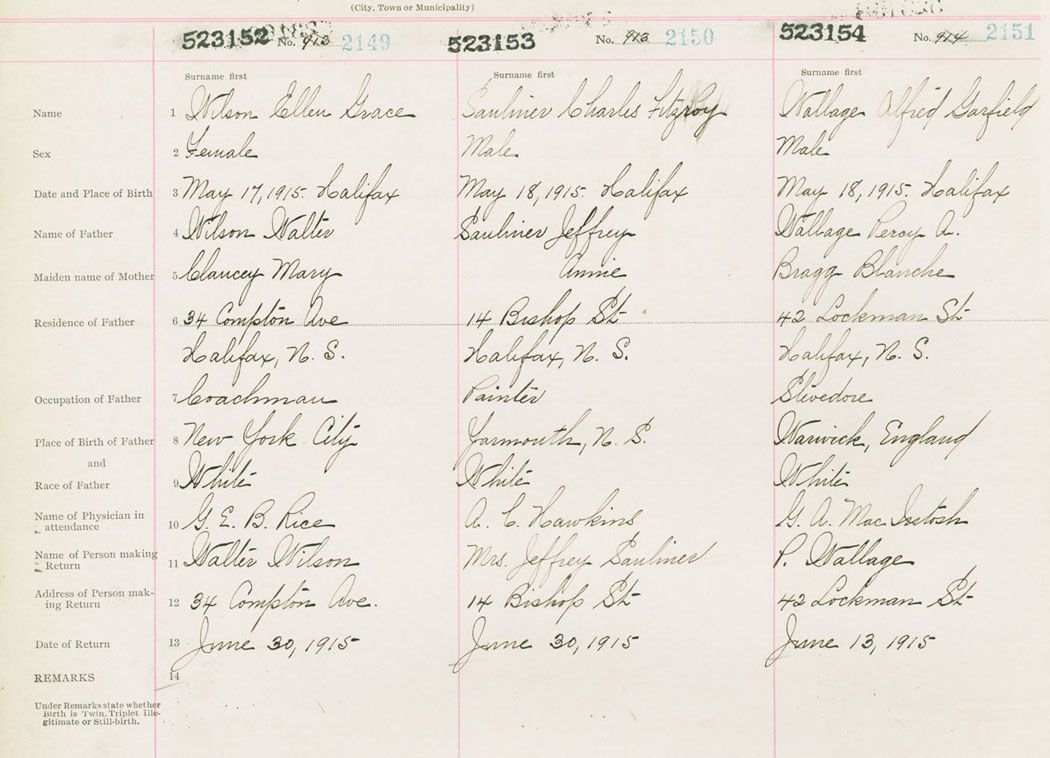 (City, Town or Municipality)
523152 No. 2149 523153 No. 913 2150 523154 No. 914 2151
Surname first Surname first Surname first
Name 1 Wilson Ellen Grace Sauliner Charles Fitzroy Wallage Alfred Garfield
Sex 2 Female Male Male
Date and Place of Birth 3 May 17, 1915. Halifax May 18, 1915. Halifax May 18, 1915. Halifax
Name of Father 4 Wilson Walter Sauliner Jeffrey Wallage Percy A.
Maiden name of Mother 5 Clancey Mary Annie Bragg Blanche
Residence of Father 6 34 Compton Ave 14 Bishop St 42 Lockman St
Halifax, N. S. Halifax, N. S. Halifax, N. S.
Occupation of Father 7 Coachman Painter Stevedore
Place of Birth of Father 8 New York City Yarmouth, N. S. Warwick, England
and
Race of Father 9 White White White
Name of Physician in
attendance 10 G. E. B. Rice A. C. Hawkins G. A. MacIntosh
Name of Person making
Return 11 Walter Wilson Mrs. Jeffrey Sauliner P. Wallage
Address of Person mak-
ing Return 12 34 Compton Ave. 14 Bishop St 42 Lockman St
Date of Return 13 June 30, 1915 June 30, 1915 June 13, 1915
REMARKS 14
Under Remarks state whether
Birth is Twin, Triplet Ille-
gitimate or Still-birth.